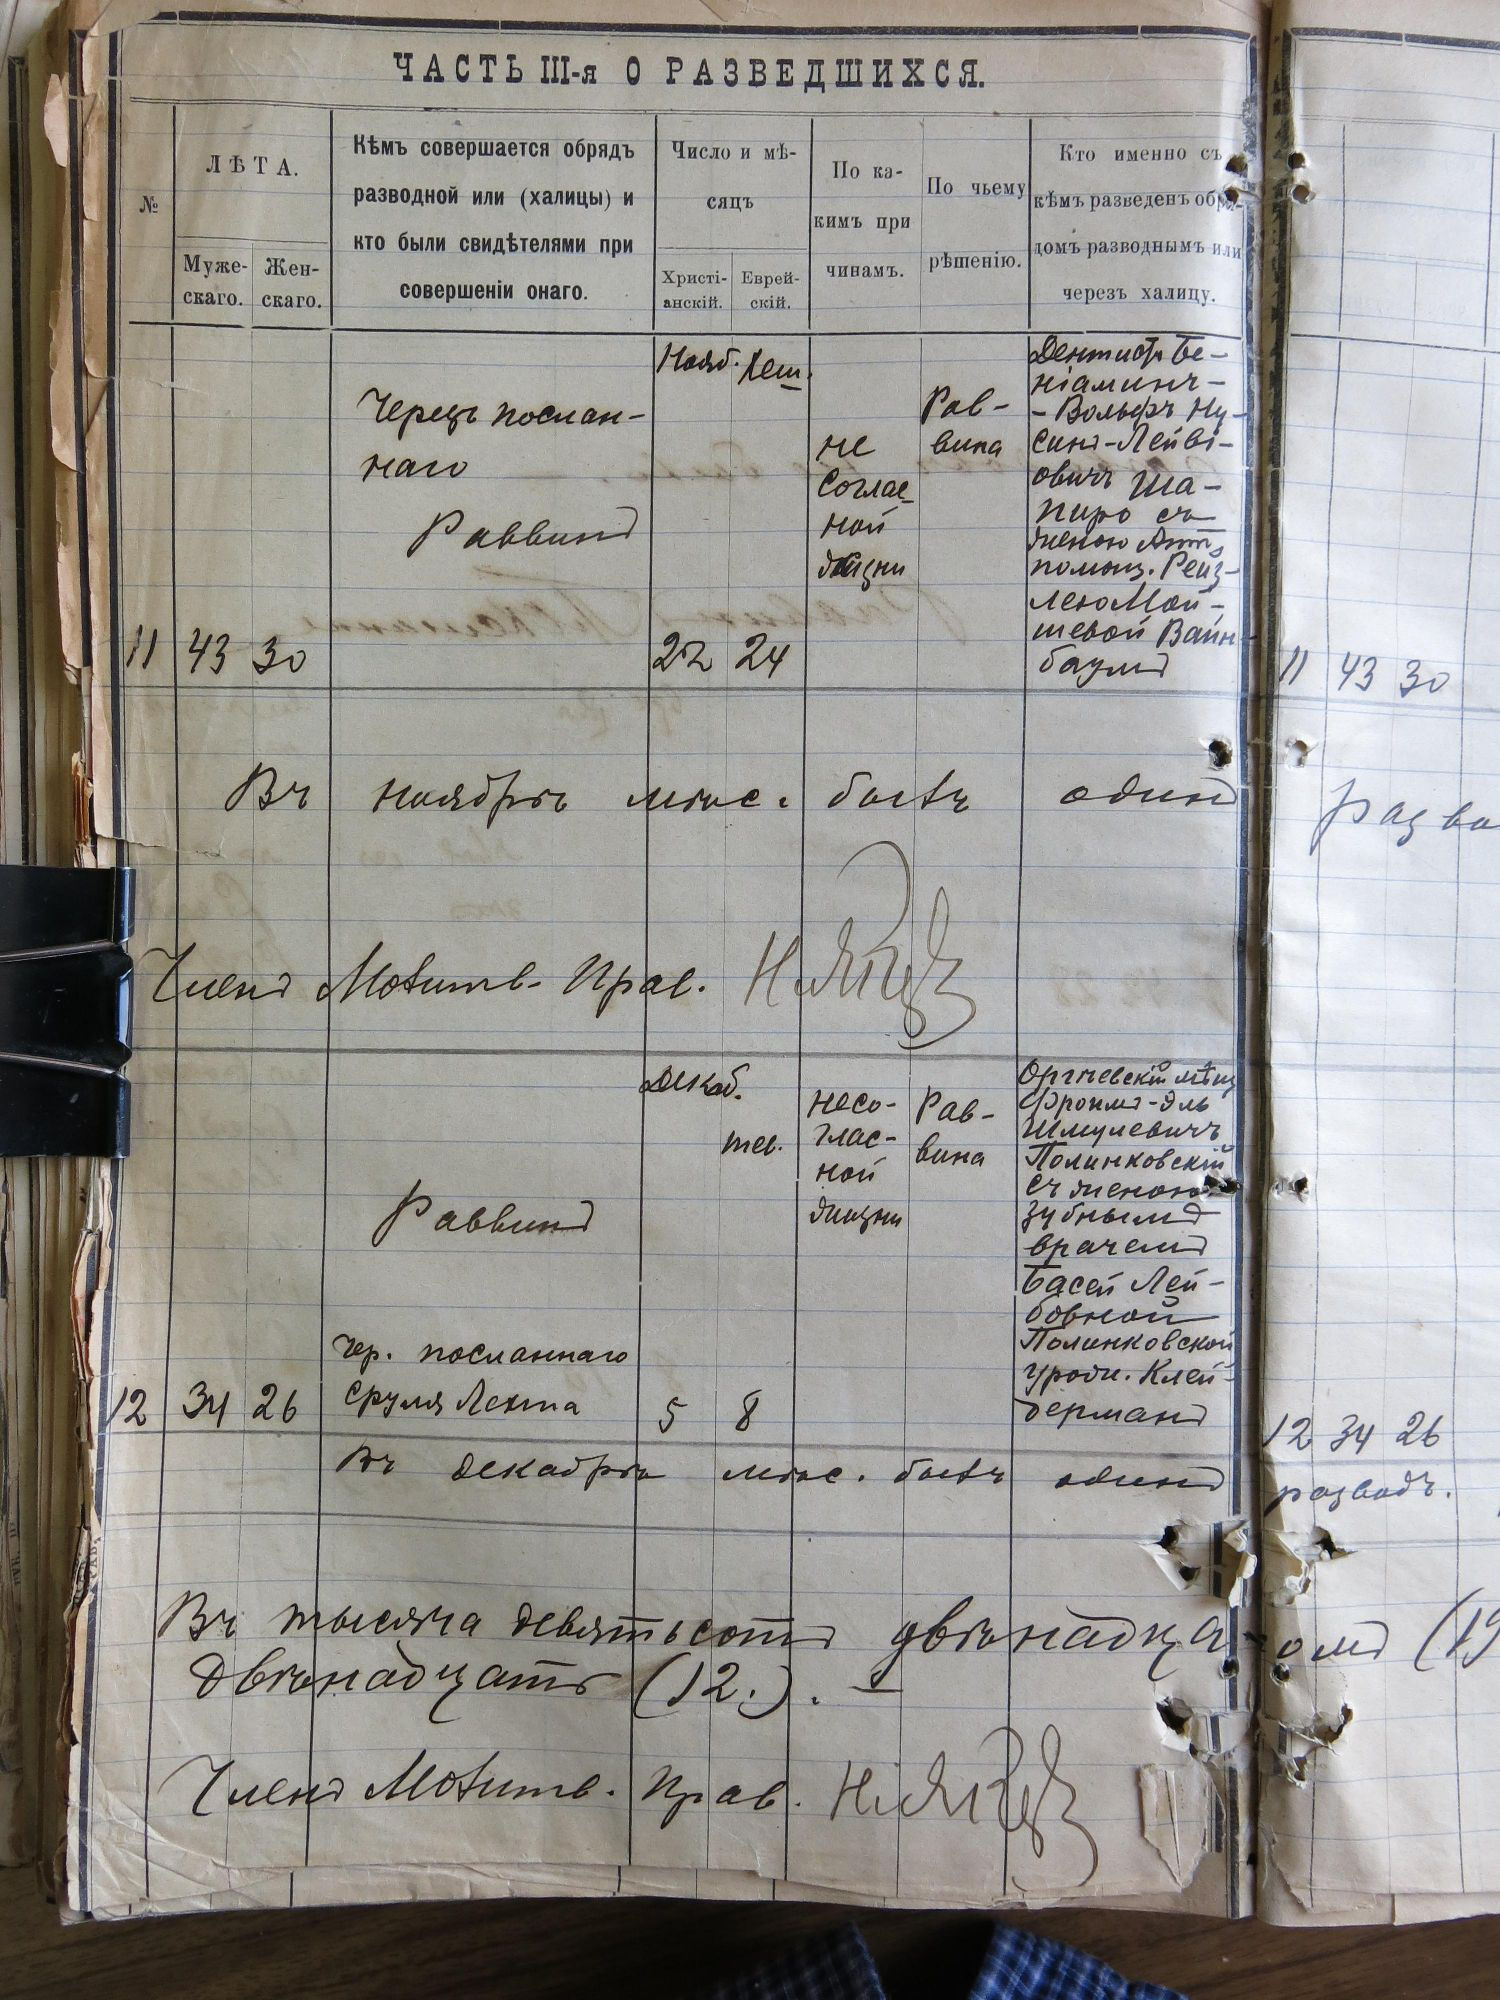 ЧАСТЬ III-я О РАЗВЕДШИХСЯ.
№
ЛѢТА.
Муже-
скаго.
Жен-
скаго.
Кѣмъ совершается обрядъ
разводной или (халицы) и
кто были свидѣтелями при
совершеніи онаго.
Число и мѣ-
сяцъ
Христі-
анскій.
Еврей-
скій.
По ка-
кимъ при
чинамъ.
По чьему
рѣшенію.
Кто именно съ
кѣмъ разведенъ обря-
домъ разводнымъ или
черезъ халицу.
11
43
30
Черезъ послан-
наго
Раввинъ
Нояб.
22
Хеш.
24
не
соглас-
ной
жизни
Рав-
вина
Дентистъ Бе-
ніаминъ-
-Вольфъ Ну-
синъ-Лейбі-
овичъ Ша-
пиро съ
женою Апт.
помощ. Рейз-
лею Мой-
шевой Вайн-
баумъ
11 43 30
Въ ноябрѣ мѣс. былъ одинъ
разво
Членъ Молитв. Прав.
12
34
26
Раввинъ
чер. посланнаго
Сруля Лехта
Декаб.
5
тев.
8
несо-
глас-
ной
жизни
Рав-
вина
Оргѣевскій мѣщ
Фроимъ-Эль
Шмулевичъ
Полинковскій
съ женою
зубнымъ
врачемъ
Басей Лей-
бовной
Полинковской
урожд. Клей-
дерманъ
12 34 26
Въ декабрѣ мѣс. былъ одинъ
разводъ.
Въ тысяча девятьсотъ двѣнадца-омъ (19
двѣнадцать (12.). —
Членъ Молитв. Прав.